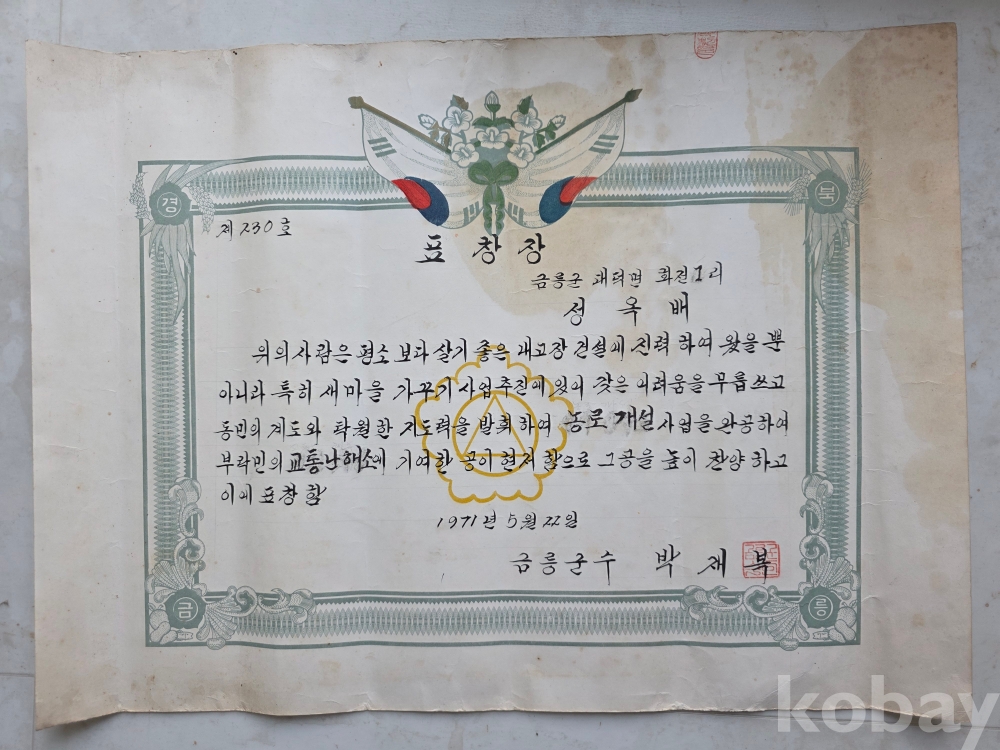 경 북
제 230 호
표 창 장
금릉군 대덕면 화전1리
성 옥 배
위의 사람은 평소 보다 살기 좋은 내고장 건설에 진력 하여 왔을 뿐
아니라 특히 새마을 가꾸기 사업 추진에 있어 갖은 어려움을 무릅쓰고
동민의 계도와 탁월한 지도력을 발휘 하여 농로 개설 사업을 완공하여
부락민의 교통난해소에 기여한 공이 현저 함으로 그공을 높이 찬양 하고
이에 표창 함
1971년 5월 22일
금릉군수 박 재 복
금 릉
kobay